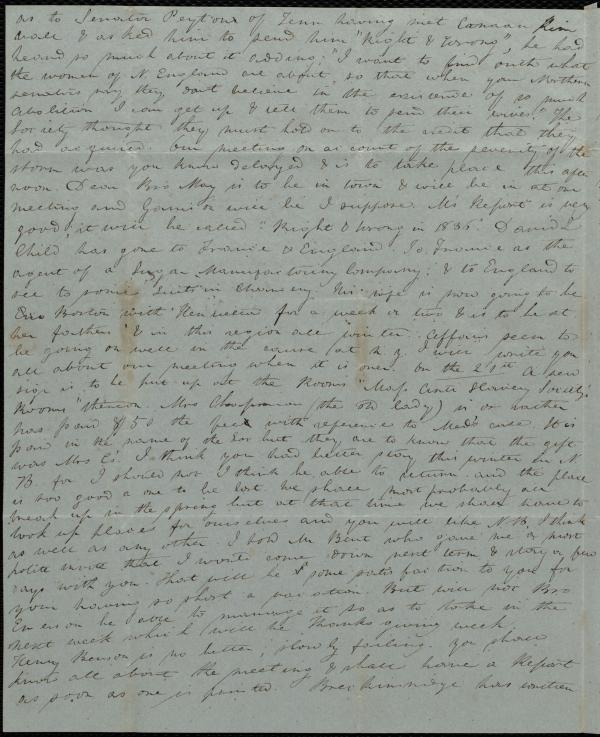 as to Senator Peyton of Tenn having met Canaan
and asked him to send him "Right & Wrong", he had
heard so much about it adding; "I want to find out what
the women of N. England are about, so that when your Northern
senators say they don't believe in the existence of so much
Abolition I can get up & tell them to send their wives." The
Society thought they must hold on to the credit that they
had acquired. Our meeting on account of the severity of the
storm was you know delayed & is to take place this after
noon. Dear Bro May is to be in town & will be in at our
meeting and Garrison will be I suppose. Ms Report is very
good; it will be called "Right & Wrong in 1836" David L
Child has gone to France & England. To France as the
agent of a Sugar Manufacturing Company; & to England to
see to some suits in Chancery. His wife is now going to be
in Boston with Henrietta for a week or two & is to be at
her father's & in this region all winter. Affairs seem to
be going on well in the cause at N. Y. I will write you
all about our meeting when it is over. On the 21st a new
sign is to be put up at the Rooms "Mass. Anti Slavery Society's
Rooms" thereon. Mrs Chapman (the old lady) is or rather
has paid $50 the fee with reference to Med's case. It is
paid in the name of the Soc but they are to know that the gift
was Mrs C's. I think you had better stay this winter in N
B. for I should not I think be able to return and the place
is too good a one to be lost. We shall most probably all
break up in the spring but at that time we shall have to
look up places for ourselves and you will like N.B. I think
as well as any other. I told Mr Bent who gave me a most
polite invite that I would come down next term & stay a few
days with you. That will be some satisfaction to you for
your having so short a vacation. But will not Bro
Emerson be able to manage it so as to take in the
next week which will be Thanksgiving week.
Henry Benson is no better; slowly failing. You shall
know all about the meeting & shall have a Report
as soon as one is printed. Breckinridge has written